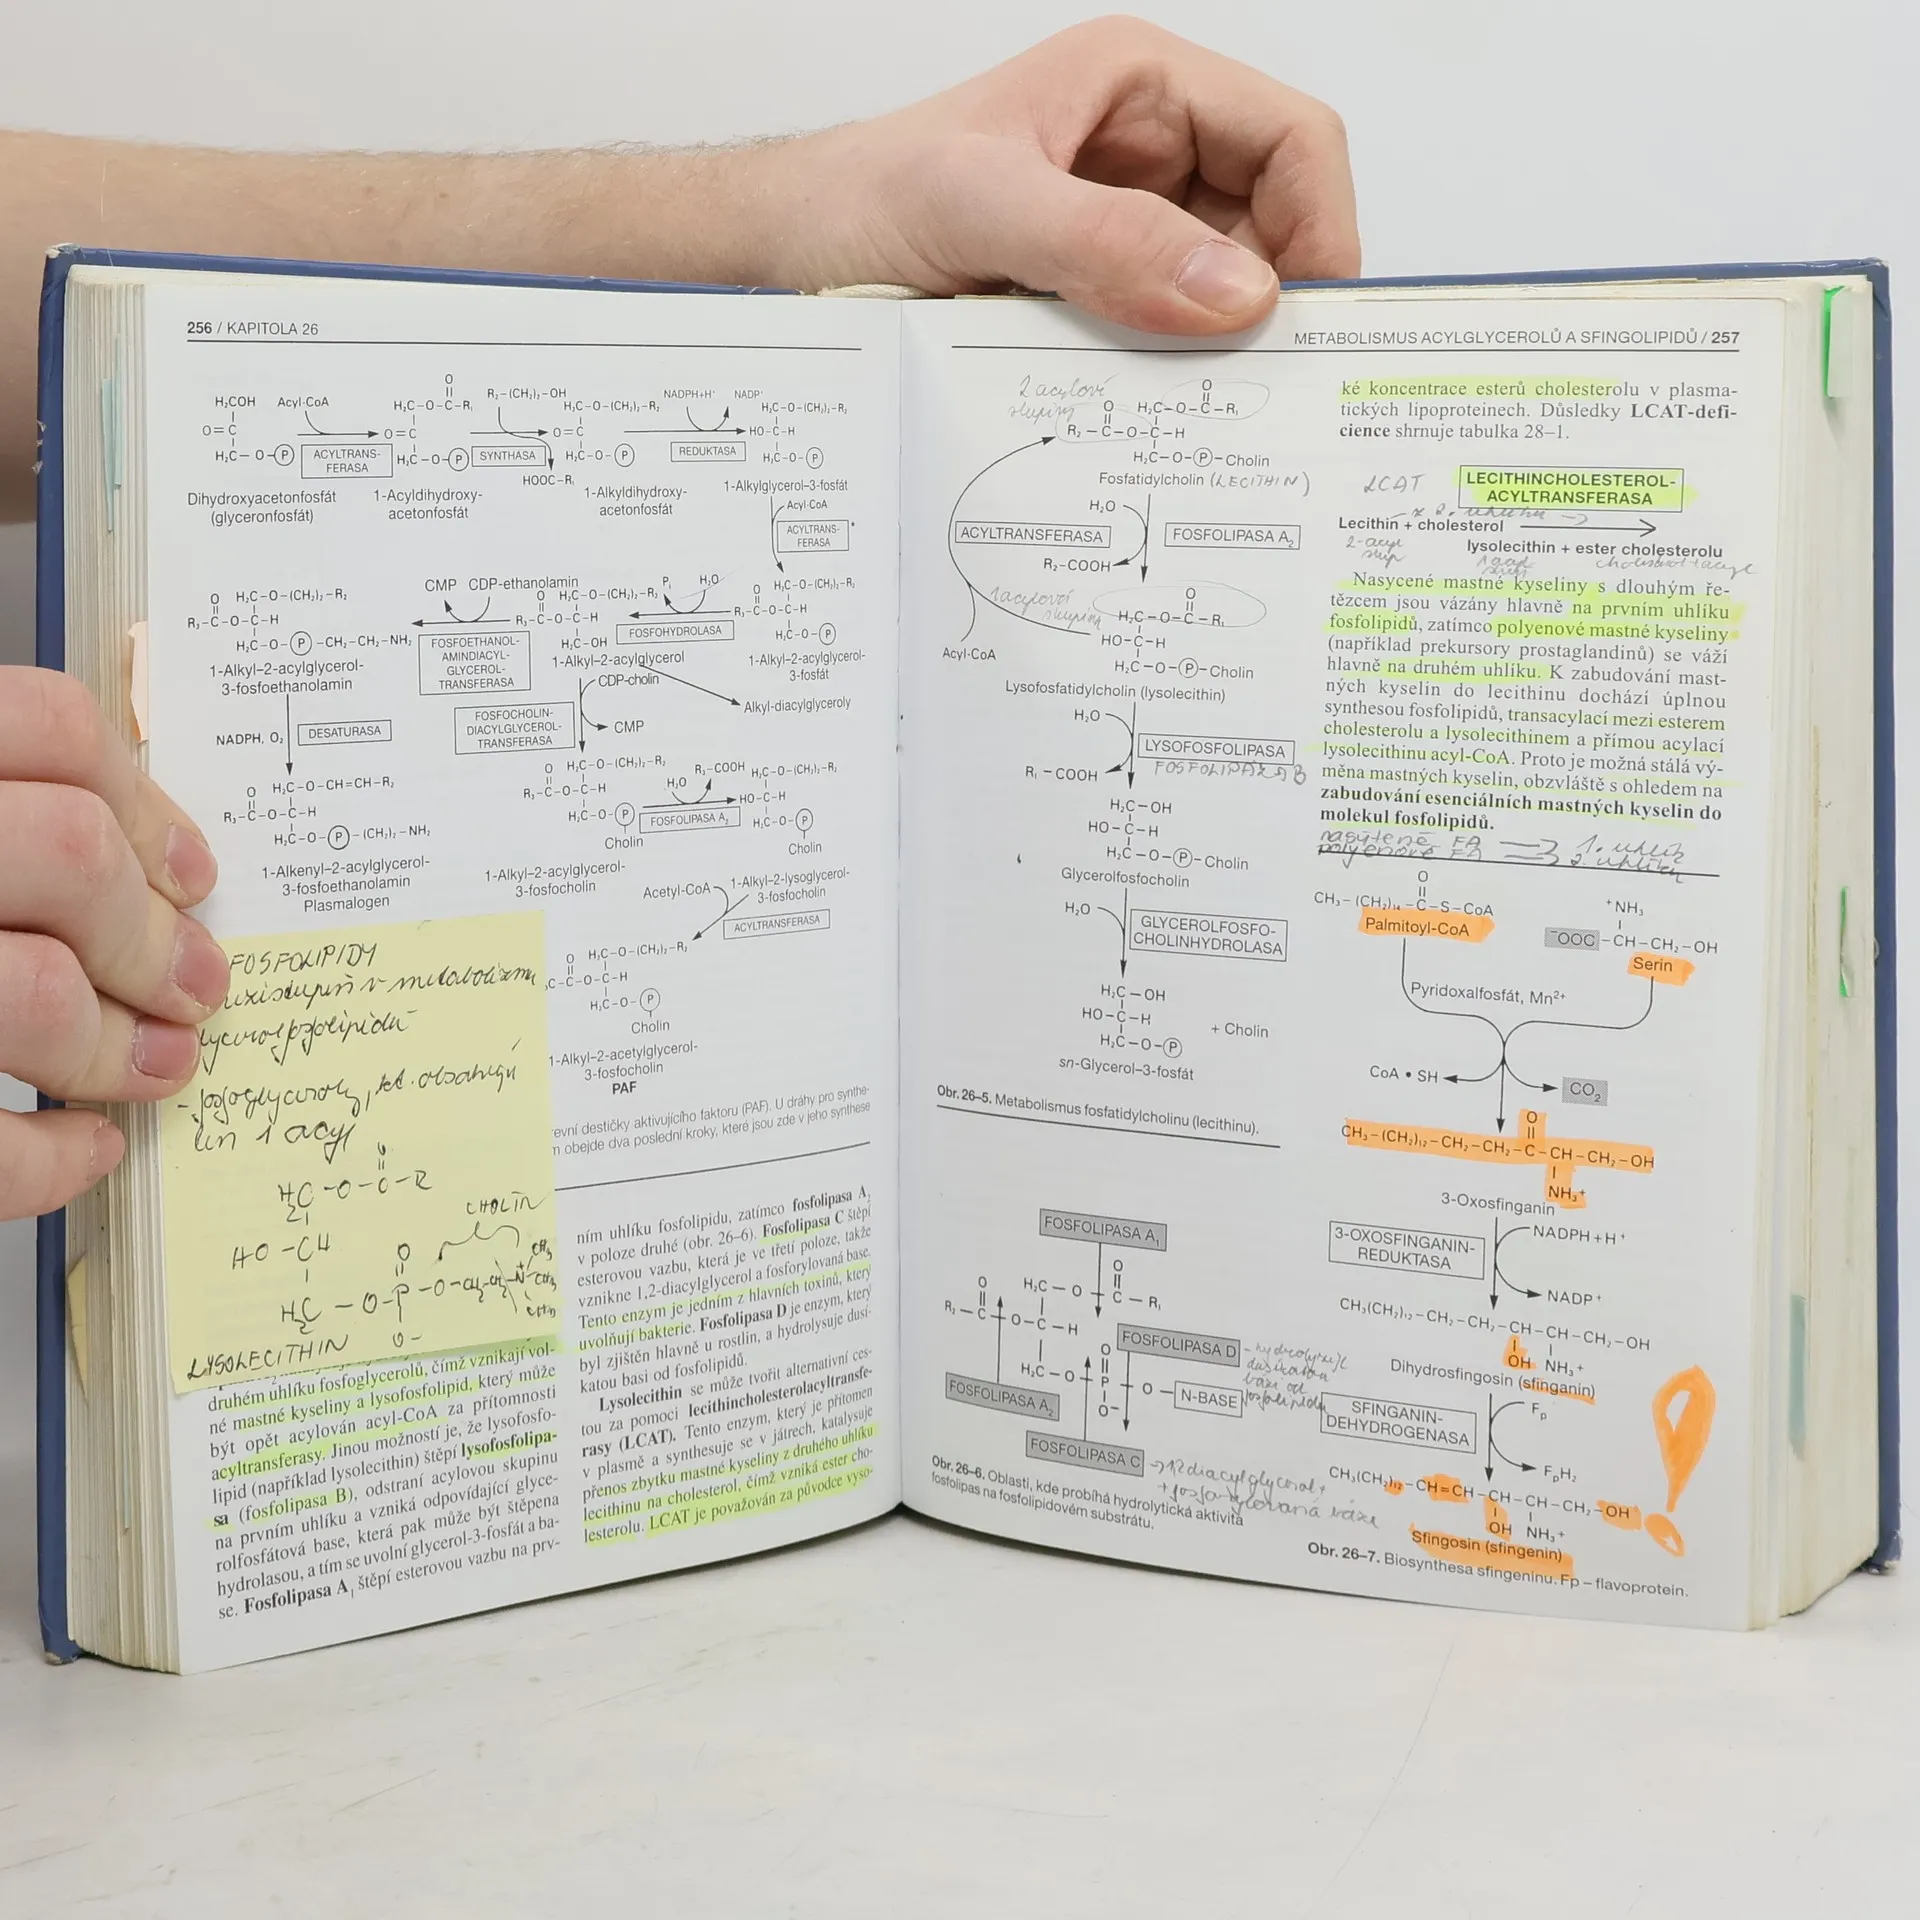 256 / KAPITOLA 26
H₂COH
O=C
H₂C–O–Ⓟ
Dihydroxyacetonfosfát
(glyceronfosfát)
Acyl·CoA
ACYLTRANS-
FERASA
O
H₂C–O–C–R₁
O=C
H₂C–O–Ⓟ
1-Acyldihydroxy-
acetonfosfát
R₂–(CH₂)₂–OH
SYNTHASA
HOOC–R₁
H₂C–O–(CH₂)₂–R₂
O=C
H₂C–O–Ⓟ
1-Alkyldihydroxy-
acetonfosfát
NADPH+H⁺
NADP⁺
REDUKTASA
H₂C–O–(CH₂)₂–R₂
HO–C–H
H₂C–O–Ⓟ
1-Alkylglycerol–3-fosfát
Acyl·CoA
ACYLTRANS-
FERASA
H₂C–O–(CH₂)₂–R₂
R₃–C–O–C–H
H₂C–O–Ⓟ
1-Alkyl–2-acylglycerol-
3-fosfát
Pᵢ
H₂O
FOSFOHYDROLASA
O
H₂C–O–(CH₂)₂–R₂
R₃–C–O–C–H
H₂C–OH
1-Alkyl–2-acylglycerol
CMP
CDP-ethanolamin
FOSFOETHANOL-
AMINDIACYL-
GLYCEROL-
TRANSFERASA
O
H₂C–O–(CH₂)₂–R₂
R₃–C–O–C–H
H₂C–O–Ⓟ–CH₂–CH₂–NH₂
1-Alkyl–2-acylglycerol-
3-fosfoethanolamin
CDP-cholin
Alkyl-diacylglyceroly
FOSFOCHOLIN-
DIACYLGLYCEROL-
TRANSFERASA
CMP
NADPH, O₂
DESATURASA
O
H₂C–O–CH=CH–R₂
R₃–C–O–C–H
H₂C–O–Ⓟ–(CH₂)₂–NH₂
1-Alkenyl–2-acylglycerol-
3-fosfoethanolamin
Plasmalogen
O
H₂C–O–(CH₂)₂–R₂
R₃–C–O–C–H
H₂C–O–Ⓟ
Cholin
1-Alkyl–2-acylglycerol-
3-fosfocholin
H₂O
R₃–COOH
FOSFOLIPASA A₂
H₂C–O–(CH₂)₂–R₂
HO–C–H
H₂C–O–Ⓟ
Cholin
1-Alkyl–2-lysoglycerol-
3-fosfocholin
Acetyl-CoA
ACYLTRANSFERASA
O
H₂C–O–(CH₂)₂–R₂
C–C–O–C–H
H₂C–O–Ⓟ
Cholin
1-Alkyl–2-acetylglycerol-
3-fosfocholin
PAF
evní destičky aktivujícího faktoru (PAF). U dráhy pro synthe-
m obejde dva poslední kroky, které jsou zde v jeho synthese
FOSFOLIPIDY
v metabolizmu
- fosfoglyceroly, kt. obsahují
len 1 acyl
O
H₂C–O–C–R
HO–CH
CHOLÍN
O
H₂C–O–P–O–CH₂–CH₂–N⁺
CH₃
CH₃
CH₃
O–
LYSOLECITHIN
druhém uhlíku fosfoglycerolů, čímž vznikají vol-
né mastné kyseliny a lysofosfolipid, který může
být opět acylován acyl-CoA za přítomnosti
acyltransferasy. Jinou možností je, že lysofosfo-
lipid (například lysolecithin) štěpí lysofosfolipa-
sa (fosfolipasa B), odstraní acylovou skupinu
na prvním uhlíku a vzniká odpovídající glyce-
rolfosfátová base, která pak může být štěpena
hydrolasou, a tím se uvolní glycerol-3-fosfát a ba-
se. Fosfolipasa A₁ štěpí esterovou vazbu na prv-
ním uhlíku fosfolipidu, zatímco fosfolipasa A₂
v poloze druhé (obr. 26–6). Fosfolipasa C štěpí
esterovou vazbu, která je ve třetí poloze, takže
vznikne 1,2-diacylglycerol a fosforylovaná base.
Tento enzym je jedním z hlavních toxinů, který
uvolňují bakterie. Fosfolipasa D je enzym, který
byl zjištěn hlavně u rostlin, a hydrolysuje dusí-
katou basi od fosfolipidů.
Lysolecithin se může tvořit alternativní ces-
tou za pomoci lecithincholesterolacyltransfe-
rasy (LCAT). Tento enzym, který je přítomen
v plasmě a synthesuje se v játrech, katalysuje
přenos zbytku mastné kyseliny z druhého uhlíku
lecithinu na cholesterol, čímž vzniká ester cho-
lesterolu. LCAT je považován za původce vyso-
METABOLISMUS ACYLGLYCEROLŮ A SFINGOLIPIDŮ / 257
2 acylové
skupiny
O
O H₂C–O–C–R₁
R₂–C–O–C–H
H₂C–O–Ⓟ–Cholin
Fosfatidylcholin (LECITHIN)
H₂O
ACYLTRANSFERASA
FOSFOLIPASA A₂
R₂–COOH
1 acylová
skupina
O
H₂C–O–C–R₁
HO–C–H
H₂C–O–Ⓟ–Cholin
Acyl·CoA
Lysofosfatidylcholin (lysolecithin)
H₂O
LYSOFOSFOLIPASA
FOSFOLIPÁZA B
R₁–COOH
H₂C–OH
HO–C–H
H₂C–O–Ⓟ–Cholin
Glycerolfosfocholin
H₂O
GLYCEROLFOSFO-
CHOLINHYDROLASA
H₂C–OH
HO–C–H
H₂C–O–Ⓟ
+ Cholin
sn-Glycerol–3-fosfát
Obr. 26–5. Metabolismus fosfatidylcholinu (lecithinu).
FOSFOLIPASA A₁
O
H₂C–O–C–R₁
O
R₂–C–O–C–H
FOSFOLIPASA D
- hydrolyzuje
dusíkatou
bázi od
fosfolipidu
O
H₂C–O–P–O–N-BASE
O⁻
FOSFOLIPASA A₂
FOSFOLIPASA C
→ 1,2 diacylglycerol +
+ fosforylovaná báze
Obr. 26–6. Oblasti, kde probíhá hydrolytická aktivita
fosfolipas na fosfolipidovém substrátu.
ké koncentrace esterů cholesterolu v plasma-
tických lipoproteinech. Důsledky LCAT-defi-
cience shrnuje tabulka 28–1.
LCAT
LECITHINCHOLESTEROL-
ACYLTRANSFERASA
z 2. uhlíku →
Lecithin + cholesterol
2-acyl
skup
lysolecithin + ester cholesterolu
cholesterol + acyl
Nasycené mastné kyseliny s dlouhým ře-
tězcem jsou vázány hlavně na prvním uhlíku
fosfolipidů, zatímco polyenové mastné kyseliny
(například prekursory prostaglandinů) se váží
hlavně na druhém uhlíku. K zabudování mast-
ných kyselin do lecithinu dochází úplnou
synthesou fosfolipidů, transacylací mezi esterem
cholesterolu a lysolecithinem a přímou acylací
lysolecithinu acyl-CoA. Proto je možná stálá vý-
měna mastných kyselin, obzvláště s ohledem na
zabudování esenciálních mastných kyselin do
molekul fosfolipidů.
nasýtené FA → 1. uhlík
polyenové FA → 2. uhlíku
O
CH₃–(CH₂)₁₄–C–S–CoA
Palmitoyl-CoA
⁺NH₃
⁻OOC–CH–CH₂–OH
Serin
Pyridoxalfosfát, Mn²⁺
CoA • SH
CO₂
O
CH₃–(CH₂)₁₂–CH₂–CH₂–C–CH–CH₂–OH
NH₃⁺
3-Oxosfinganin
3-OXOSFINGANIN-
REDUKTASA
NADPH+H⁺
NADP⁺
CH₃(CH₂)₁₂–CH₂–CH₂–CH–CH–CH₂–OH
OH NH₃⁺
Dihydrosfingosin (sfinganin)
SFINGANIN-
DEHYDROGENASA
Fp
FpH₂
CH₃(CH₂)₁₂–CH=CH–CH–CH–CH₂–OH
OH NH₃⁺
Sfingosin (sfingenin)
Obr. 26–7. Biosynthesa sfingeninu. Fp – flavoprotein.